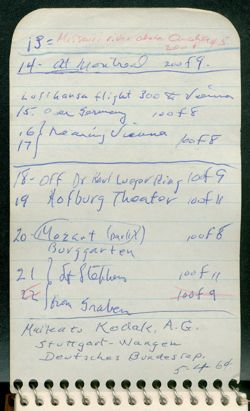 13 = Missouri river above Omaha
14 - at Montreal 200 f 9.
Lufthansa flight 300 & Vienna
15. over Germany. 100 f 8
16
17 } nearing Vienna 100 f 8
18 - Off Dr Karl Lueger Ring 100 f 9
19 Hofburg Theater 100 f 11
20 - Mozart 100 f 8
Burggarten
21 } St Stephen 100 f 11
22 from Graben 100 f 9
Mail to Kodak, A.G.
Stuttgart - Wangen
Deutsches Bundesrep.
5-4-64